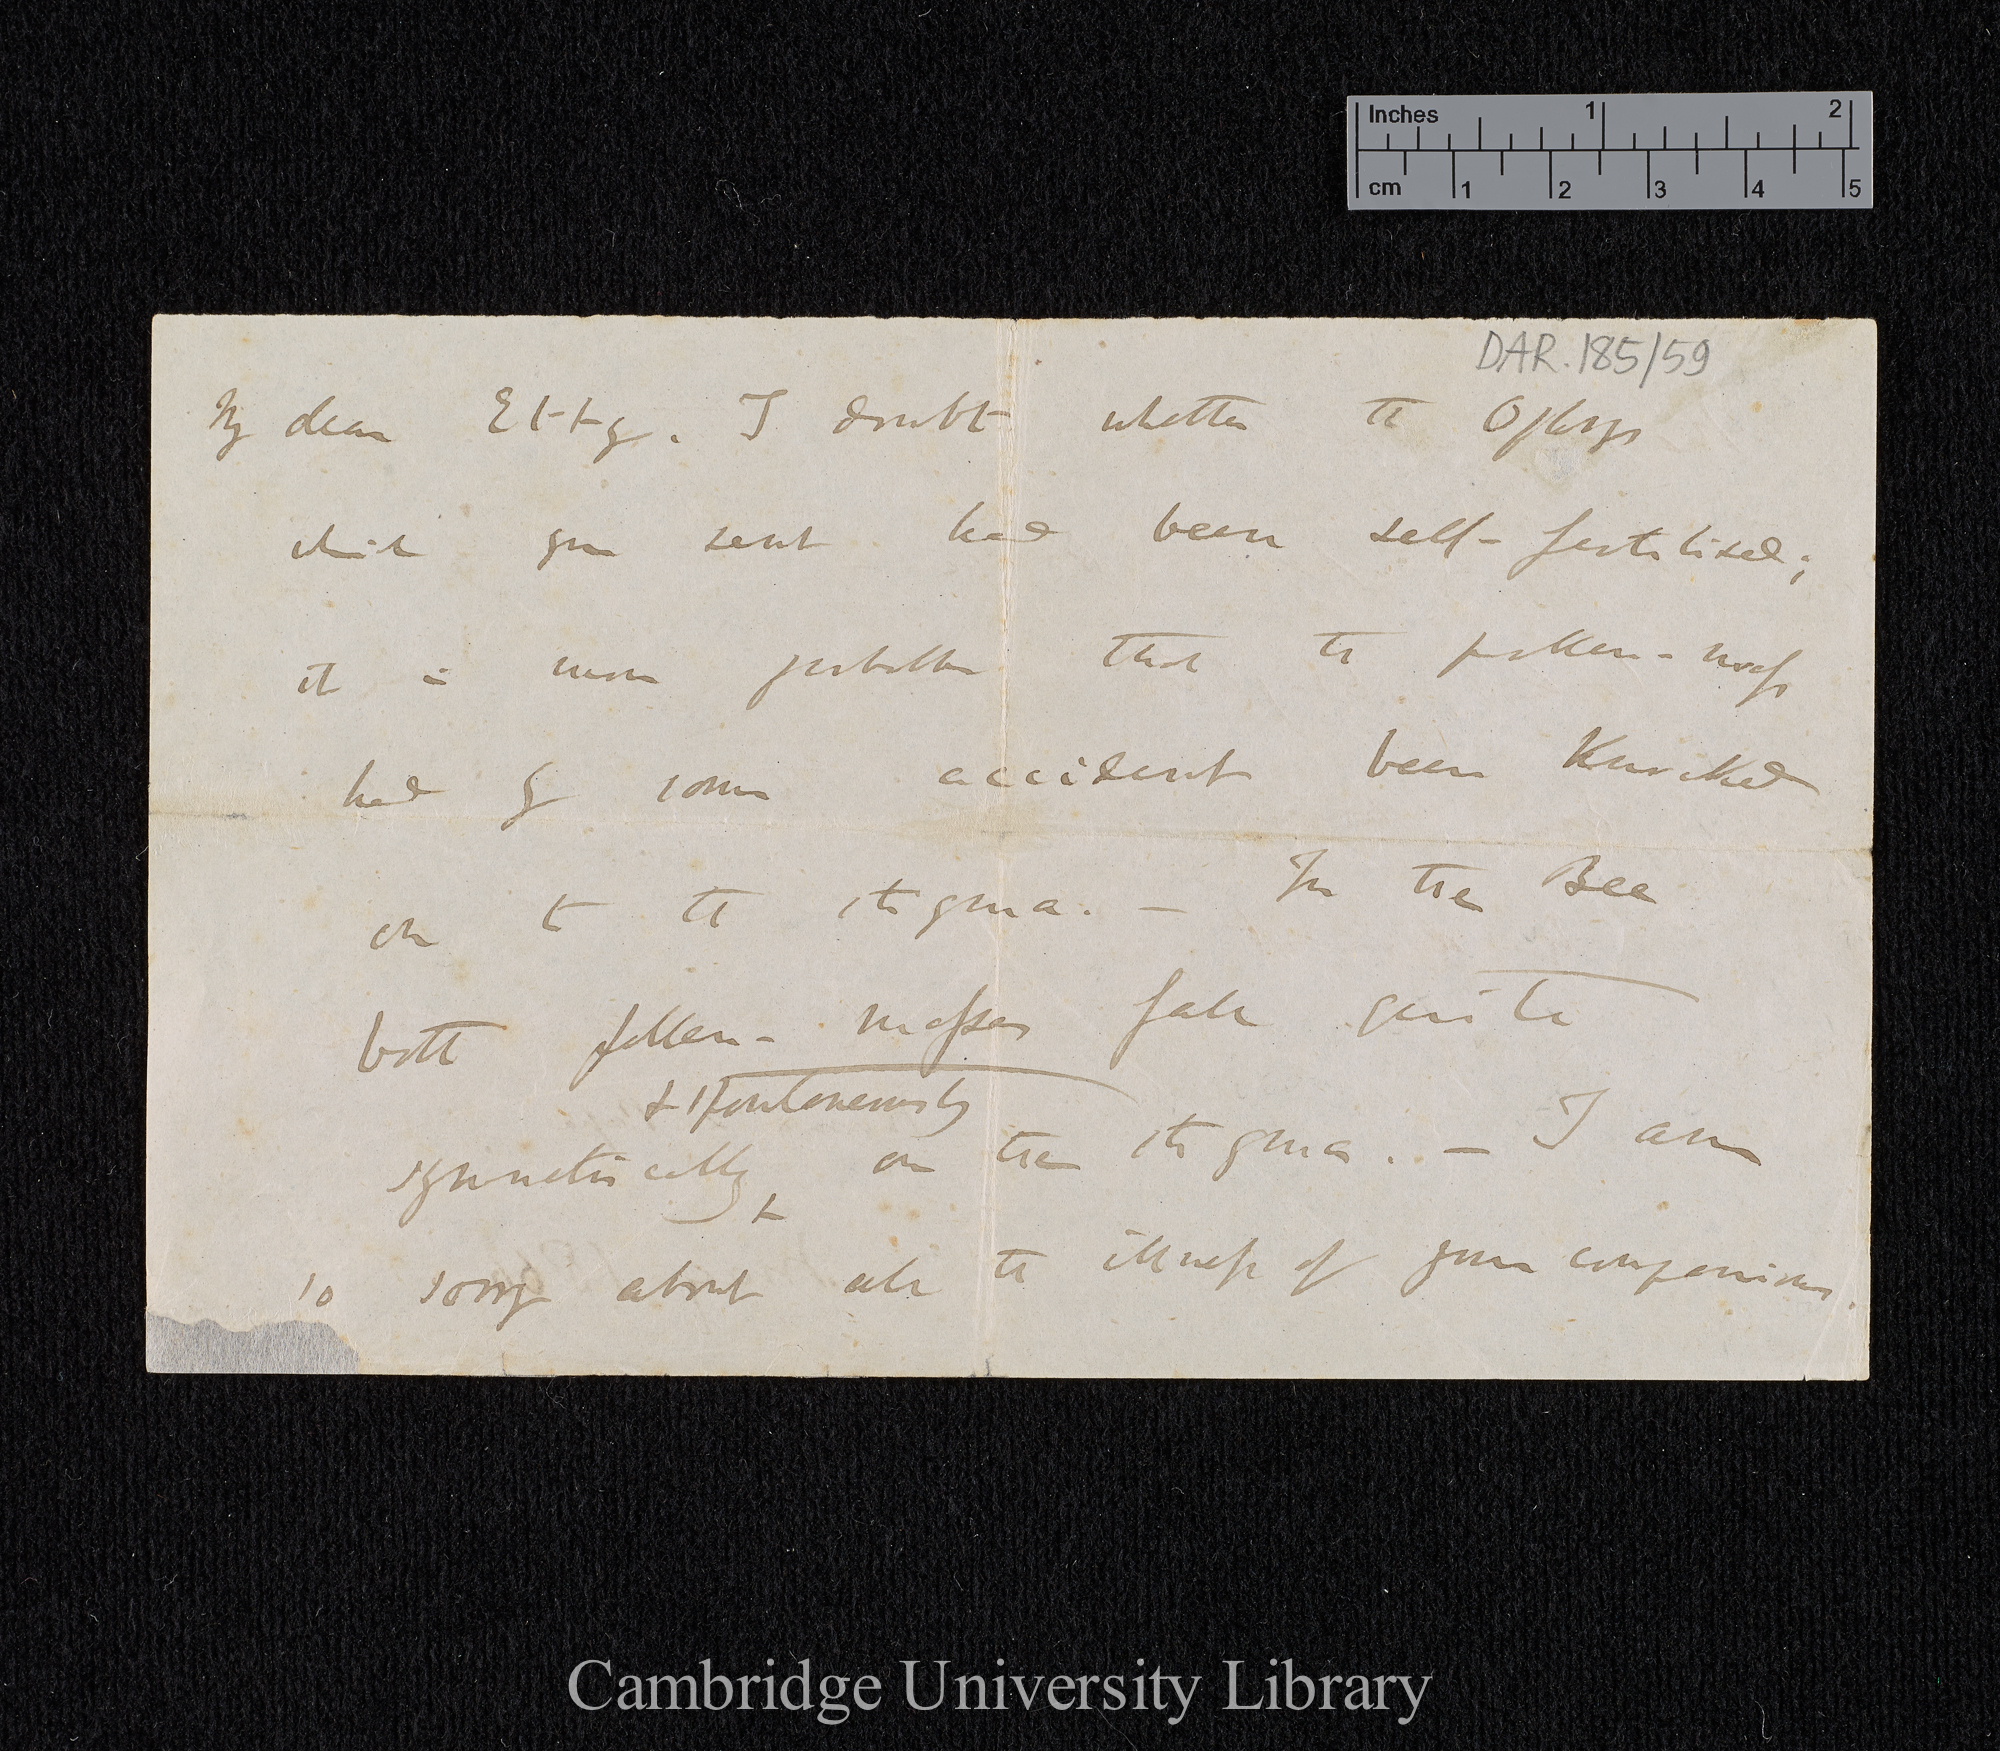 Inches 1 2
cm 1 2 3 4 5
DAR.185/59
My dear Etty. I doubt whether the Ophrys
which you sent had been self-fertilised;
it is more probable that the pollen-mass
had by some accident been knocked
on to the stigma. — In the Bee
both pollen-masses fall quite
& spontaneously
symetrically on the stigma. — I am
so sorry about all the illness of your companions.
Cambridge University Library